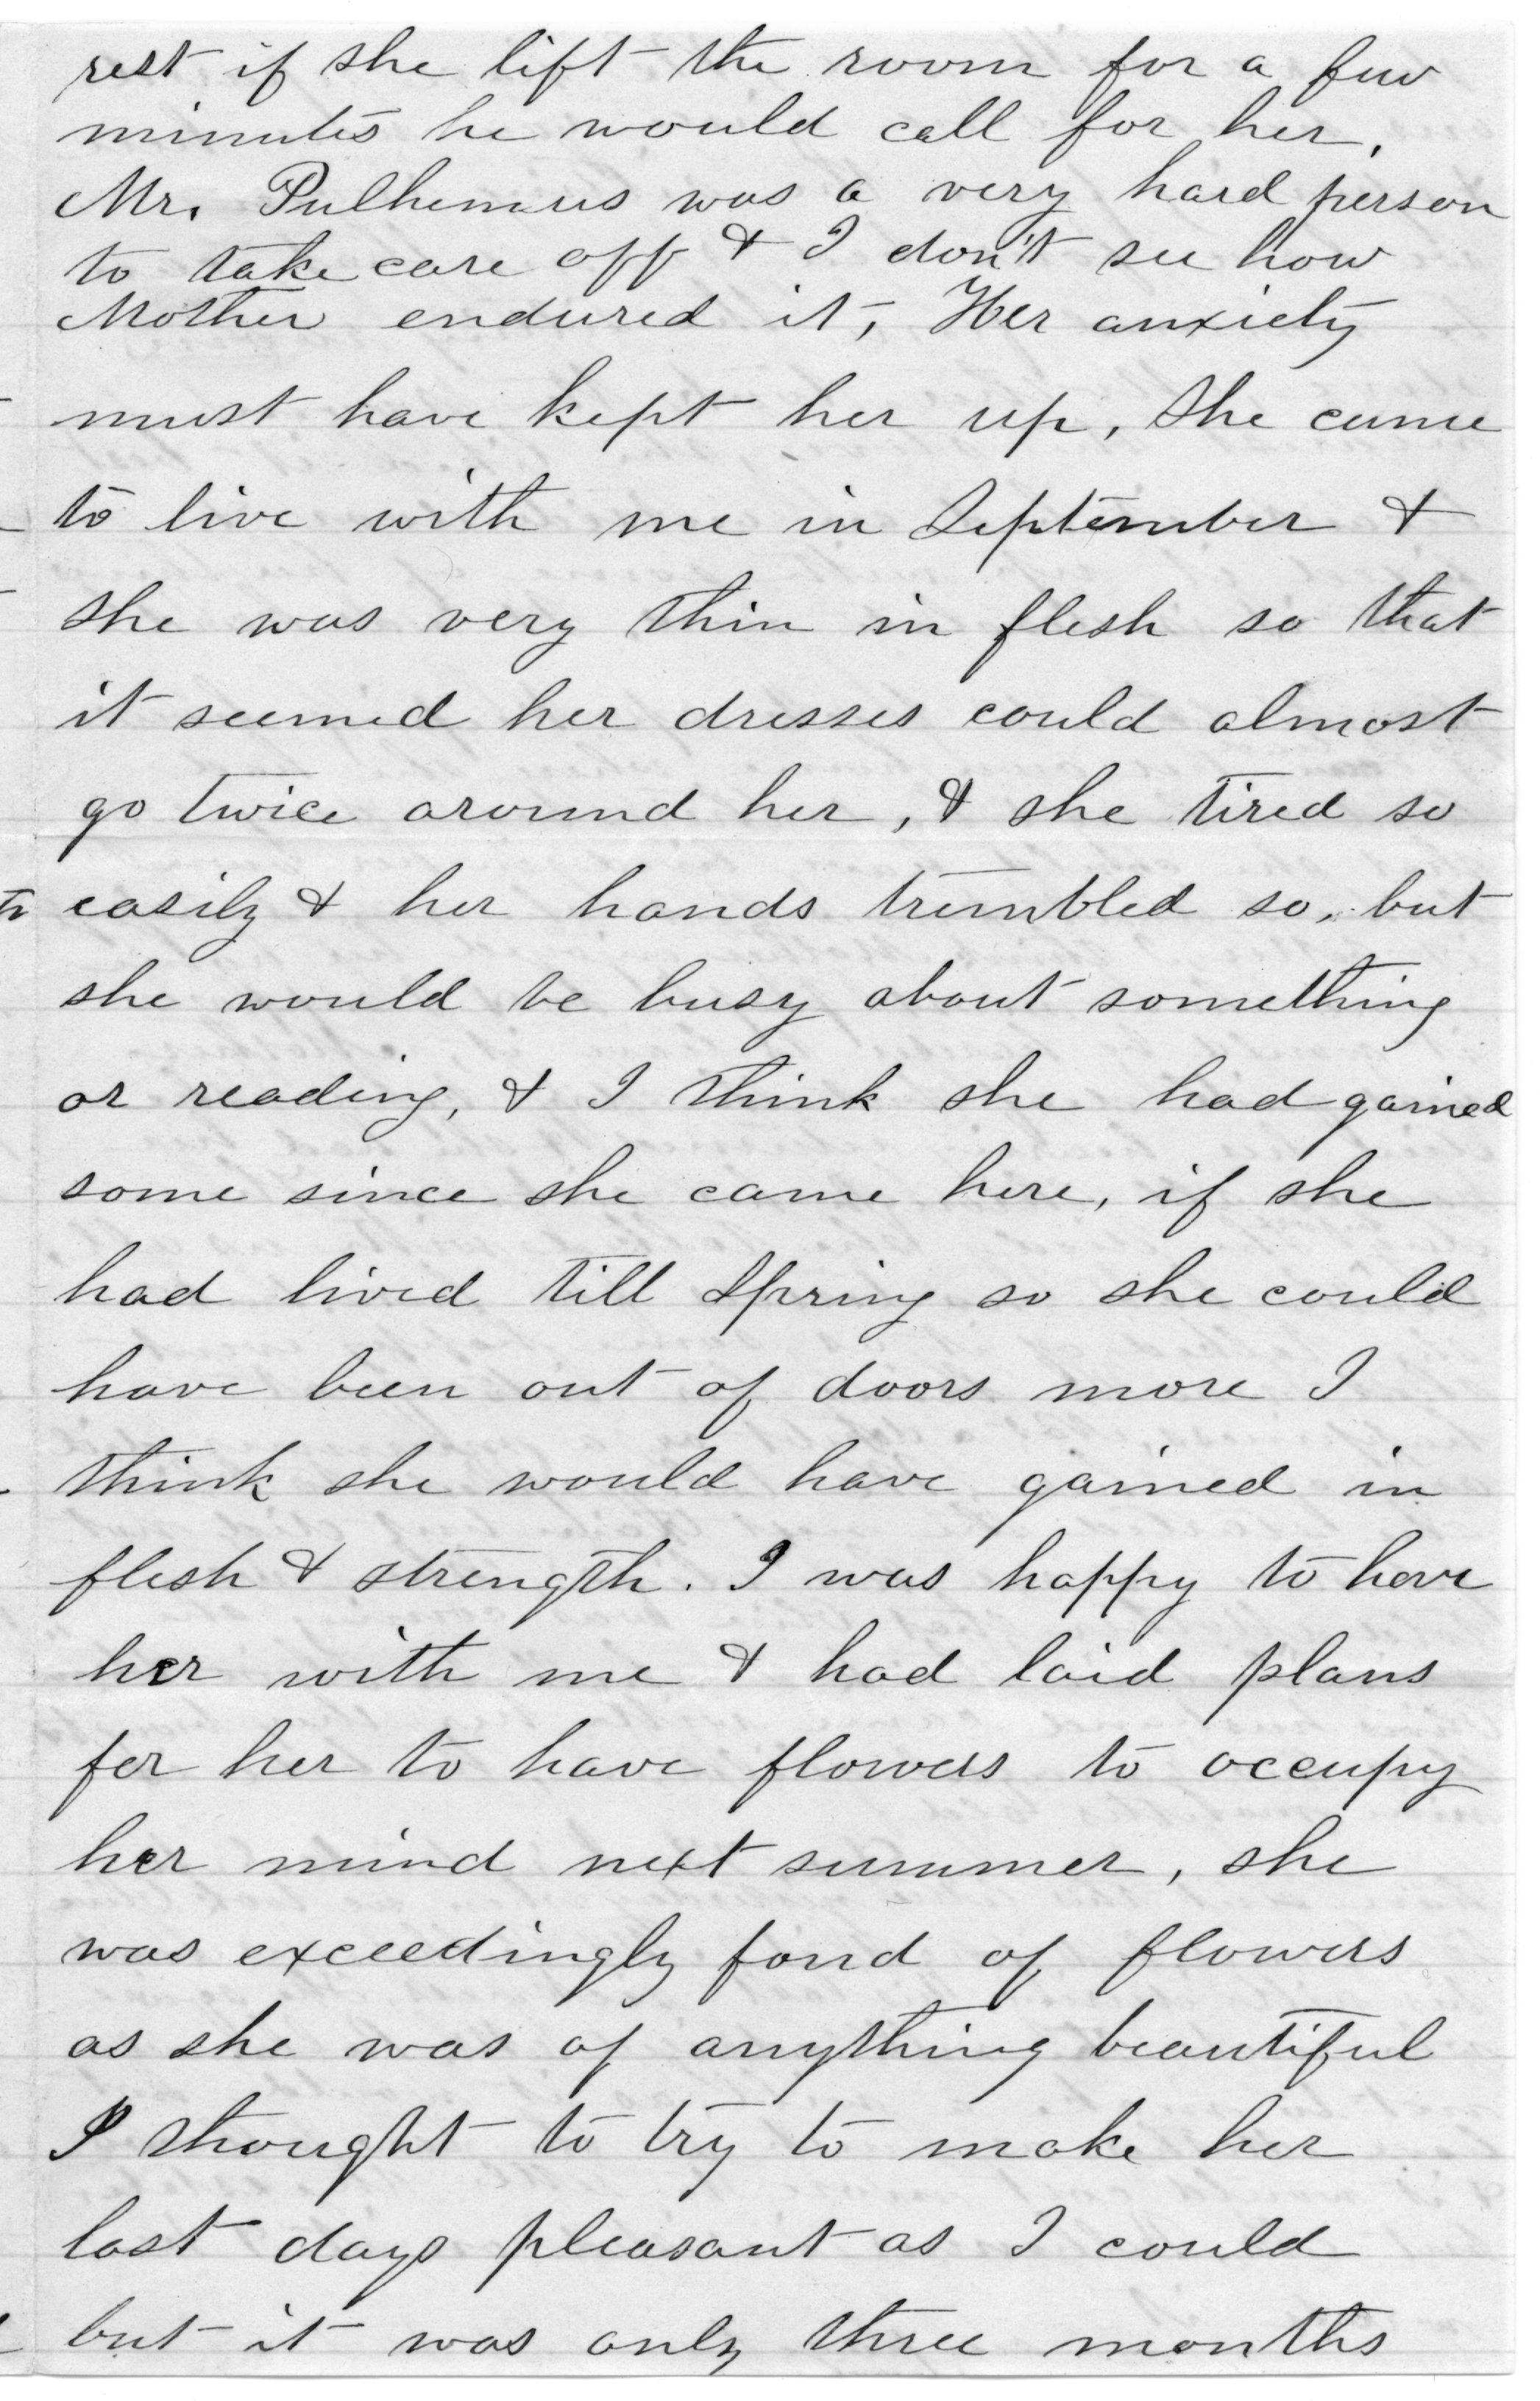 rest if she left the room for a few
minutes he would call for her,
Mr. Pulhemus was a very hard person
to take care off & I don't see how
Mother endured it, Her anxiety
must have kept her up, She came
to live with me in September &
she was very thin in flesh so that
it seemed her dresses could almost
go twice around her, & she tired so
easily & her hands trembled so, but
she would be busy about something
or reading, & I think she had gained
some since she came here, if she
had lived till Spring so she could
have been out of doors more I
think she would have gained in
flesh & strength. I was happy to have
her with me & had laid plans
for her to have flowers to occupy
her mind next summer, she
was exceedingly fond of flowers
as she was of anything beautiful
I thought to try to make her
last days pleasant as I could
but it was only three months